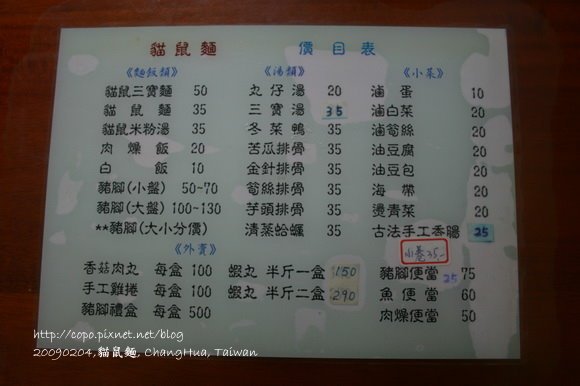 貓鼠麵 價目表
《麵飯類》
貓鼠三寶麵 50
貓鼠麵 35
貓鼠米粉湯 35
肉燥飯 20
白飯 10
豬腳(小盤) 50~70
豬腳(大盤) 100~130
**豬腳(大小分價)
《湯類》
丸仔湯 20
三寶湯 35
冬菜鴨 35
苦瓜排骨 35
金針排骨 35
筍絲排骨 35
芋頭排骨 35
清蒸蛤蠣 35
《小菜》
滷蛋 10
滷白菜 20
滷筍絲 20
油豆腐 20
油豆包 20
海帶 20
燙青菜 20
古法手工香腸 25
小卷35-
《外賣》
香菇肉丸 每盒 100
手工雞捲 每盒 100
豬腳禮盒 每盒 500
蝦丸 半斤一盒 150
蝦丸 半斤二盒 290
豬腳便當 75
25
魚便當 60
肉燥便當 50
http://copo.pixnet.net/blog
20090204,貓鼠麵, ChangHua, Taiwan